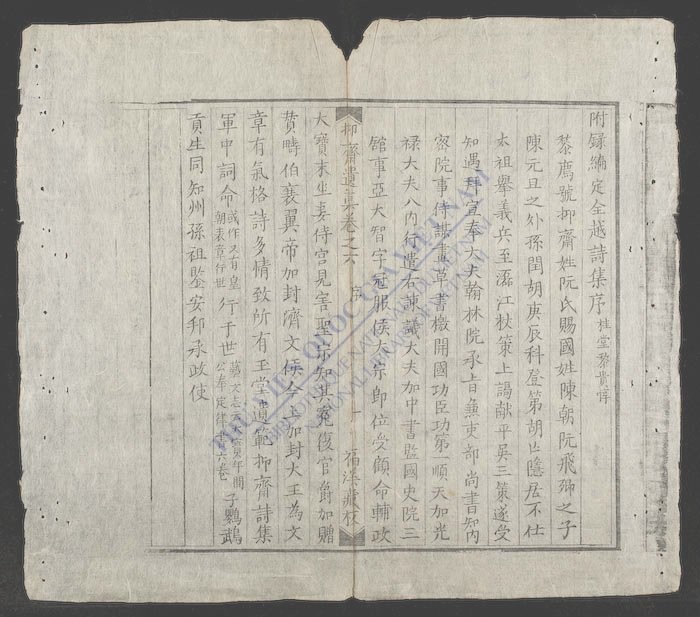 附録編定全越詩集序 桂堂黎貴惇
黎廌號抑齋姓阮氏賜國姓陳朝阮飛卿之子
陳元旦之外孫閏胡庚辰科登第胡亡隱居不仕
太祖舉義兵至江杖策上謁献平吳三策遂受
知遇拜宣奉大夫翰林院承旨兼吏部尚書知內
密院事侍謀畫草書檄開國功臣功第一順天加光
禄大夫入内行遣右諫議大夫加中書監國史院三
舘事亞大智字冠服侯太宗即位受顧命輔政
抑齋遺集卷之六 序 福溪藏板
大寶末坐妾侍宮見害聖宗知其寃復官爵加贈
賛疇伯襄翼帝加封濟文侯今上加封大王為文
章有氣格詩多情致所有玉堂遺範抑齋詩集
軍中詞命 或作又有皇朝表章行世 行于世 藝文志云年間公奉定律六卷 子鸚鵡
貢生同知州孫祖鑒安邦承政使
THƯ VIỆN QUỐC GIA VIỆT NAM
THE NATIONAL LIBRARY OF VIETNAM